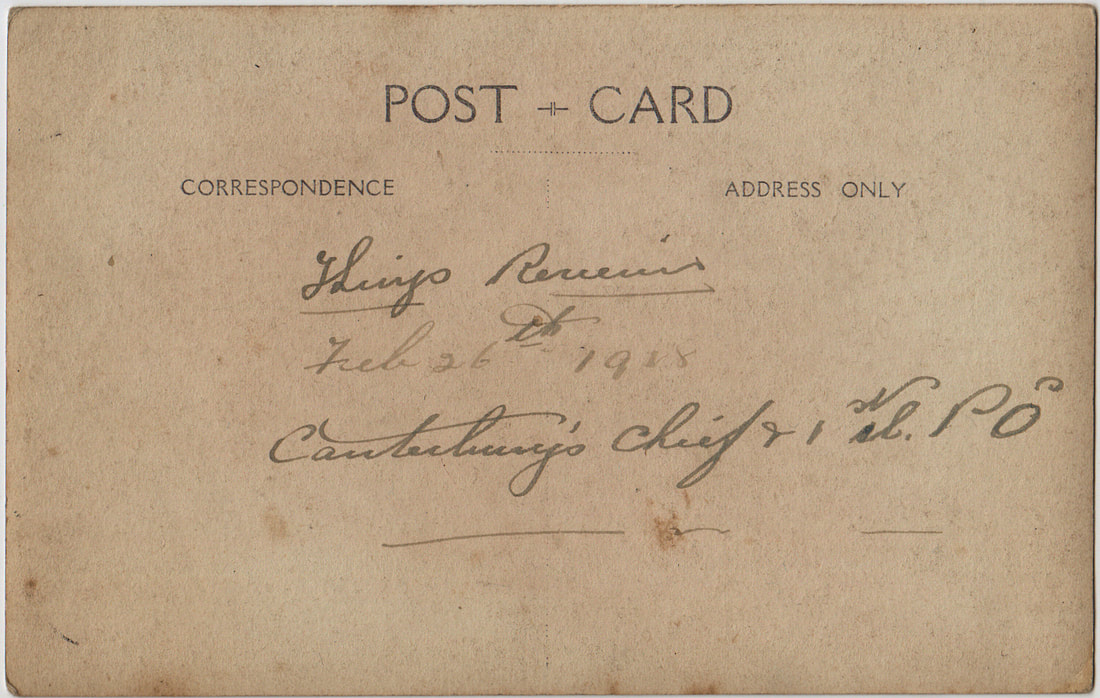 POST CARD
CORRESPONDENCE ADDRESS ONLY
Kings
Feb 26th 1918
Canterbury's Chief & 1 PO